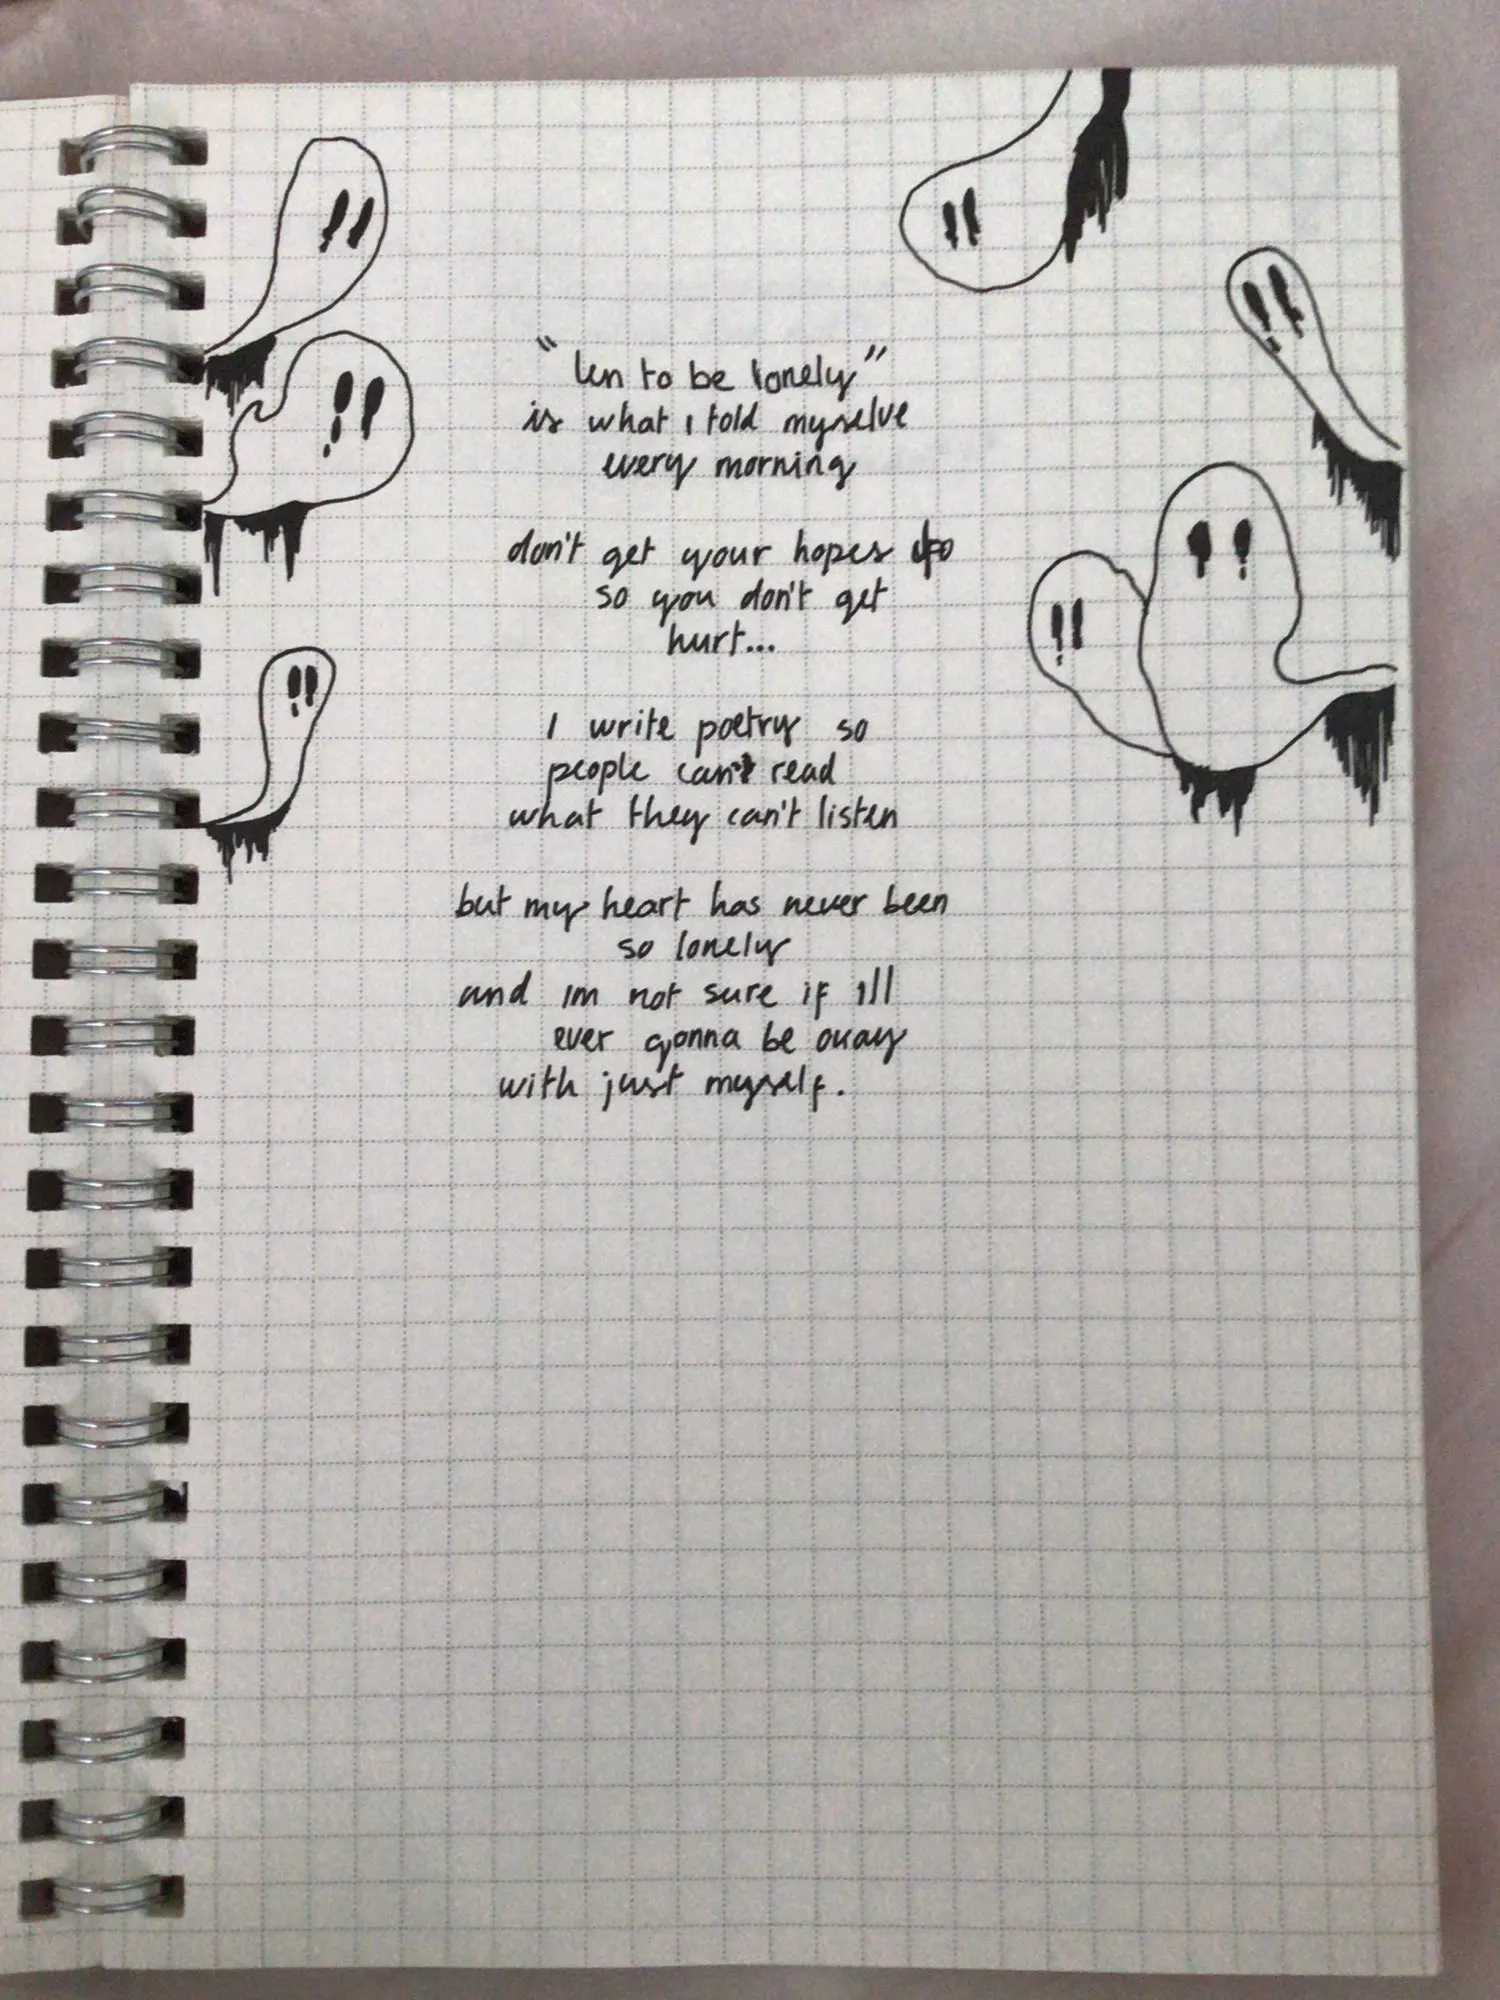 "len to be lonely"
is what I told myselve
every morning
don't get your hopes up
so you don't get
hurt...
I write poetry so
people can read
what they can't listen
but my heart has never been
so lonely
and im not sure if ill
ever gonna be okay
with just myself.